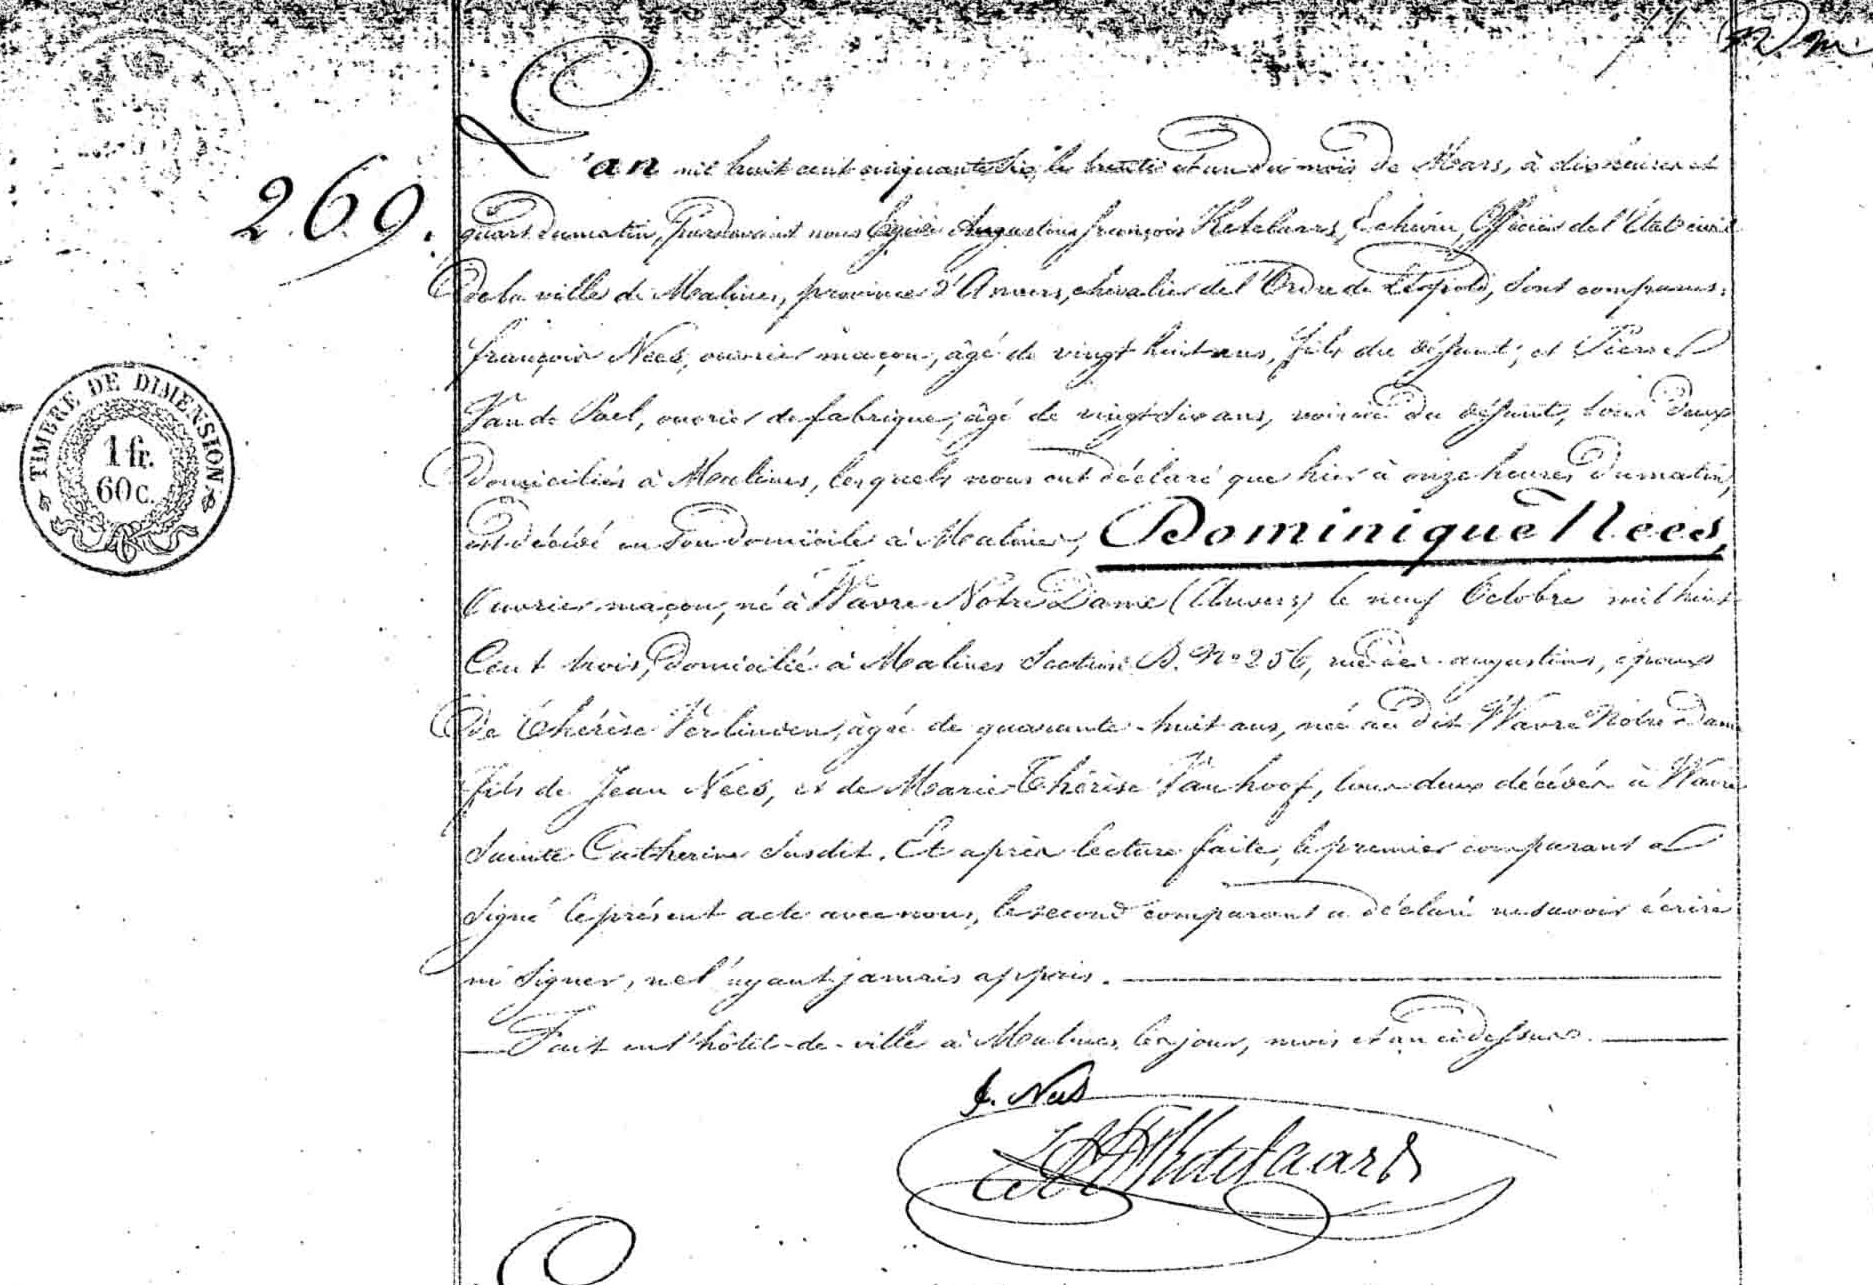 269.
TIMBRE DE DIMENSION
1 fr.
60 c.
L'an mil huit cent cinquante six, le trente et un du mois de Mars, à dix heures et
quart du matin, Pardevant nous Egide Augustin françois Ketelaars, Echevin, Officier de l'Etat civil
de la ville de Malines, province d'Anvers, chevalier de l'Ordre de Léopold, sont comparus:
françois Nees, ouvrier maçon, âgé de vingt huit ans, fils du défunt; et Pierre
Van de Poel, ouvrier de fabrique, âgé de vingt six ans, voisin du défunt, tous deux
domiciliés à Malines, lesquels nous ont déclaré que hier à onze heures du matin,
est décédé en son domicile à Malines, Dominique Nees,
Ouvrier maçon, né à Wavre Notre Dame (Anvers) le neuf Octobre mil huit
Cent trois, domicilié à Malines Section B. No 256, rue des augustins, époux
de Thérèse Verlinden, âgée de quarante-huit ans, née au dit Wavre Notre Dame
fils de Jean Nees, et de Marie Thérèse Vanhoof, tous deux décédés à Wavre
Sainte Catherine susdit. Et après lecture faite, le premier comparant a
signé le présent acte avec nous, le second comparant a déclaré ne savoir écrire
ni signer, ne l'ayant jamais appris.
Fait en l'hôtel-de-ville à Malines, les jour, mois et an ci dessus.
f. Nees
Ketelaars